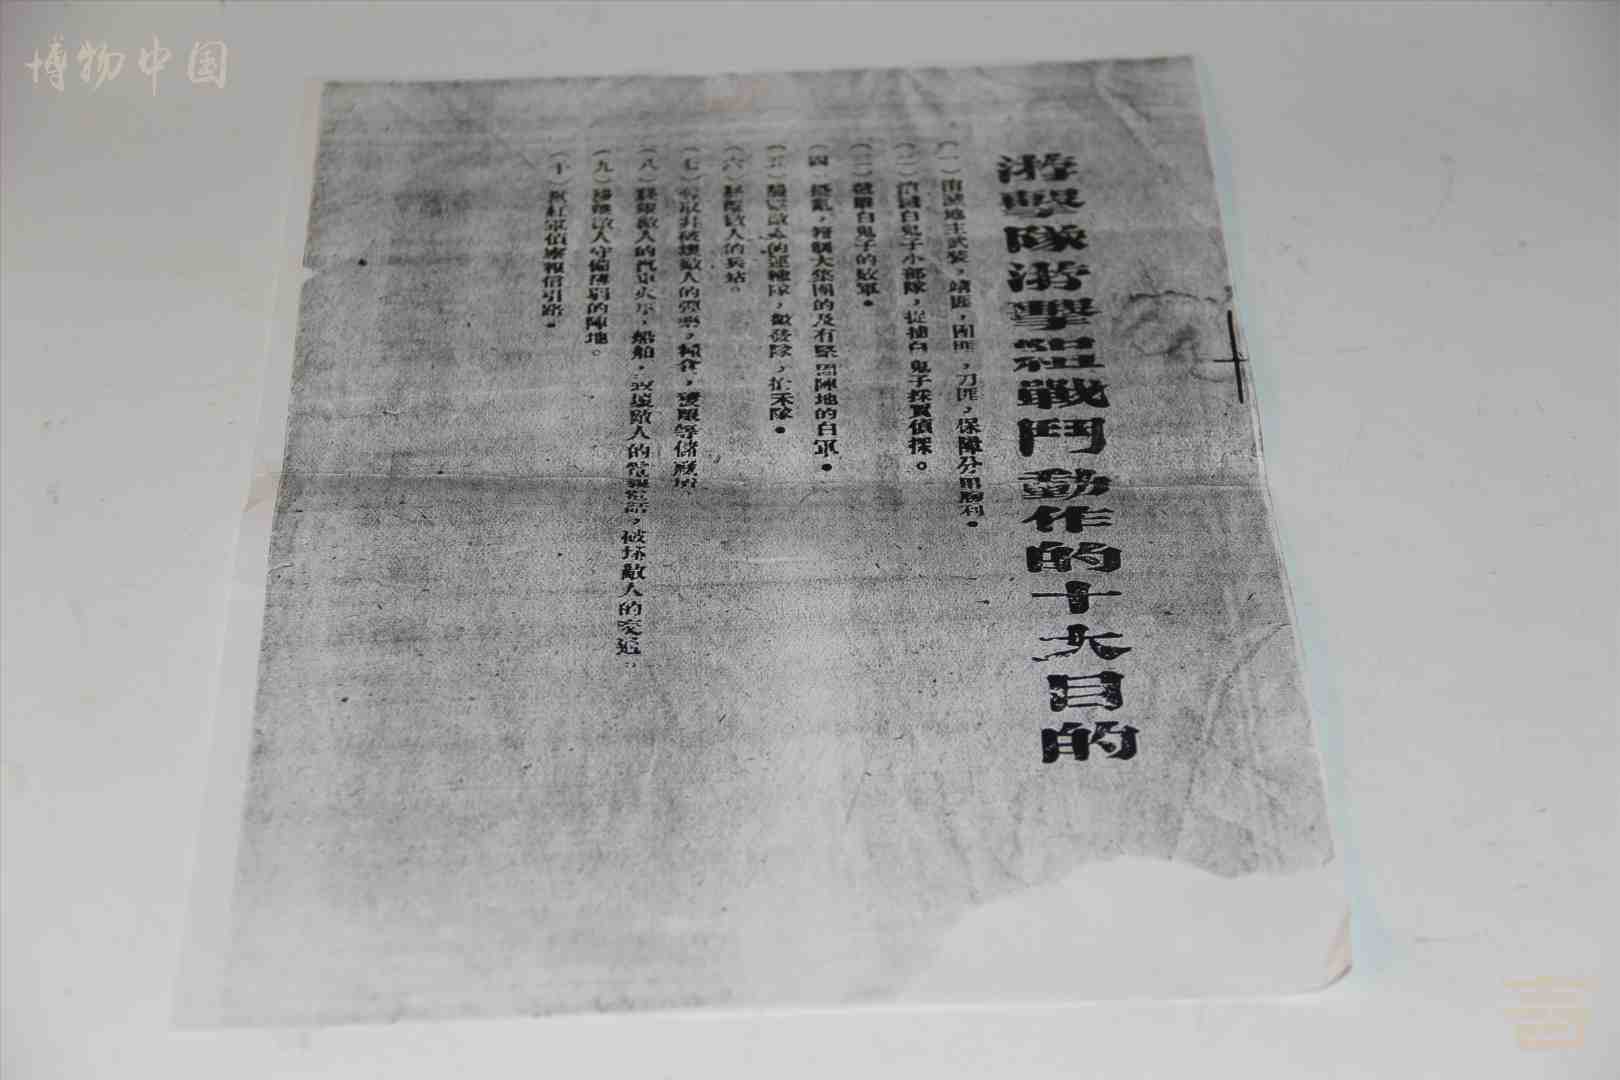 博物中国
游擊隊游擊組戰鬥動作的十大目的
(一)消滅地主武裝,靖匪,團匪,刀匪,保障分田勝利。
(二)消滅白鬼子小部隊,捉捕白鬼子採買偵探。
(三)截斷白鬼子的敗軍。
(四)擾亂,箝制大集團的及有堅固陣地的白軍。
(五)襲擊敵人的運輸隊,徵發隊,搶禾隊。
(六)襲擊敵人的兵站。
(七)奪取并破壞敵人的彈藥,糧食,等儲藏
(八)襲擊敵人的汽車火車,船舶,破壞敵人的電報電話,破坏敵人的交通。
(九)擾亂敵人守備薄弱的陣地。
(十)與紅軍偵察報信引路。